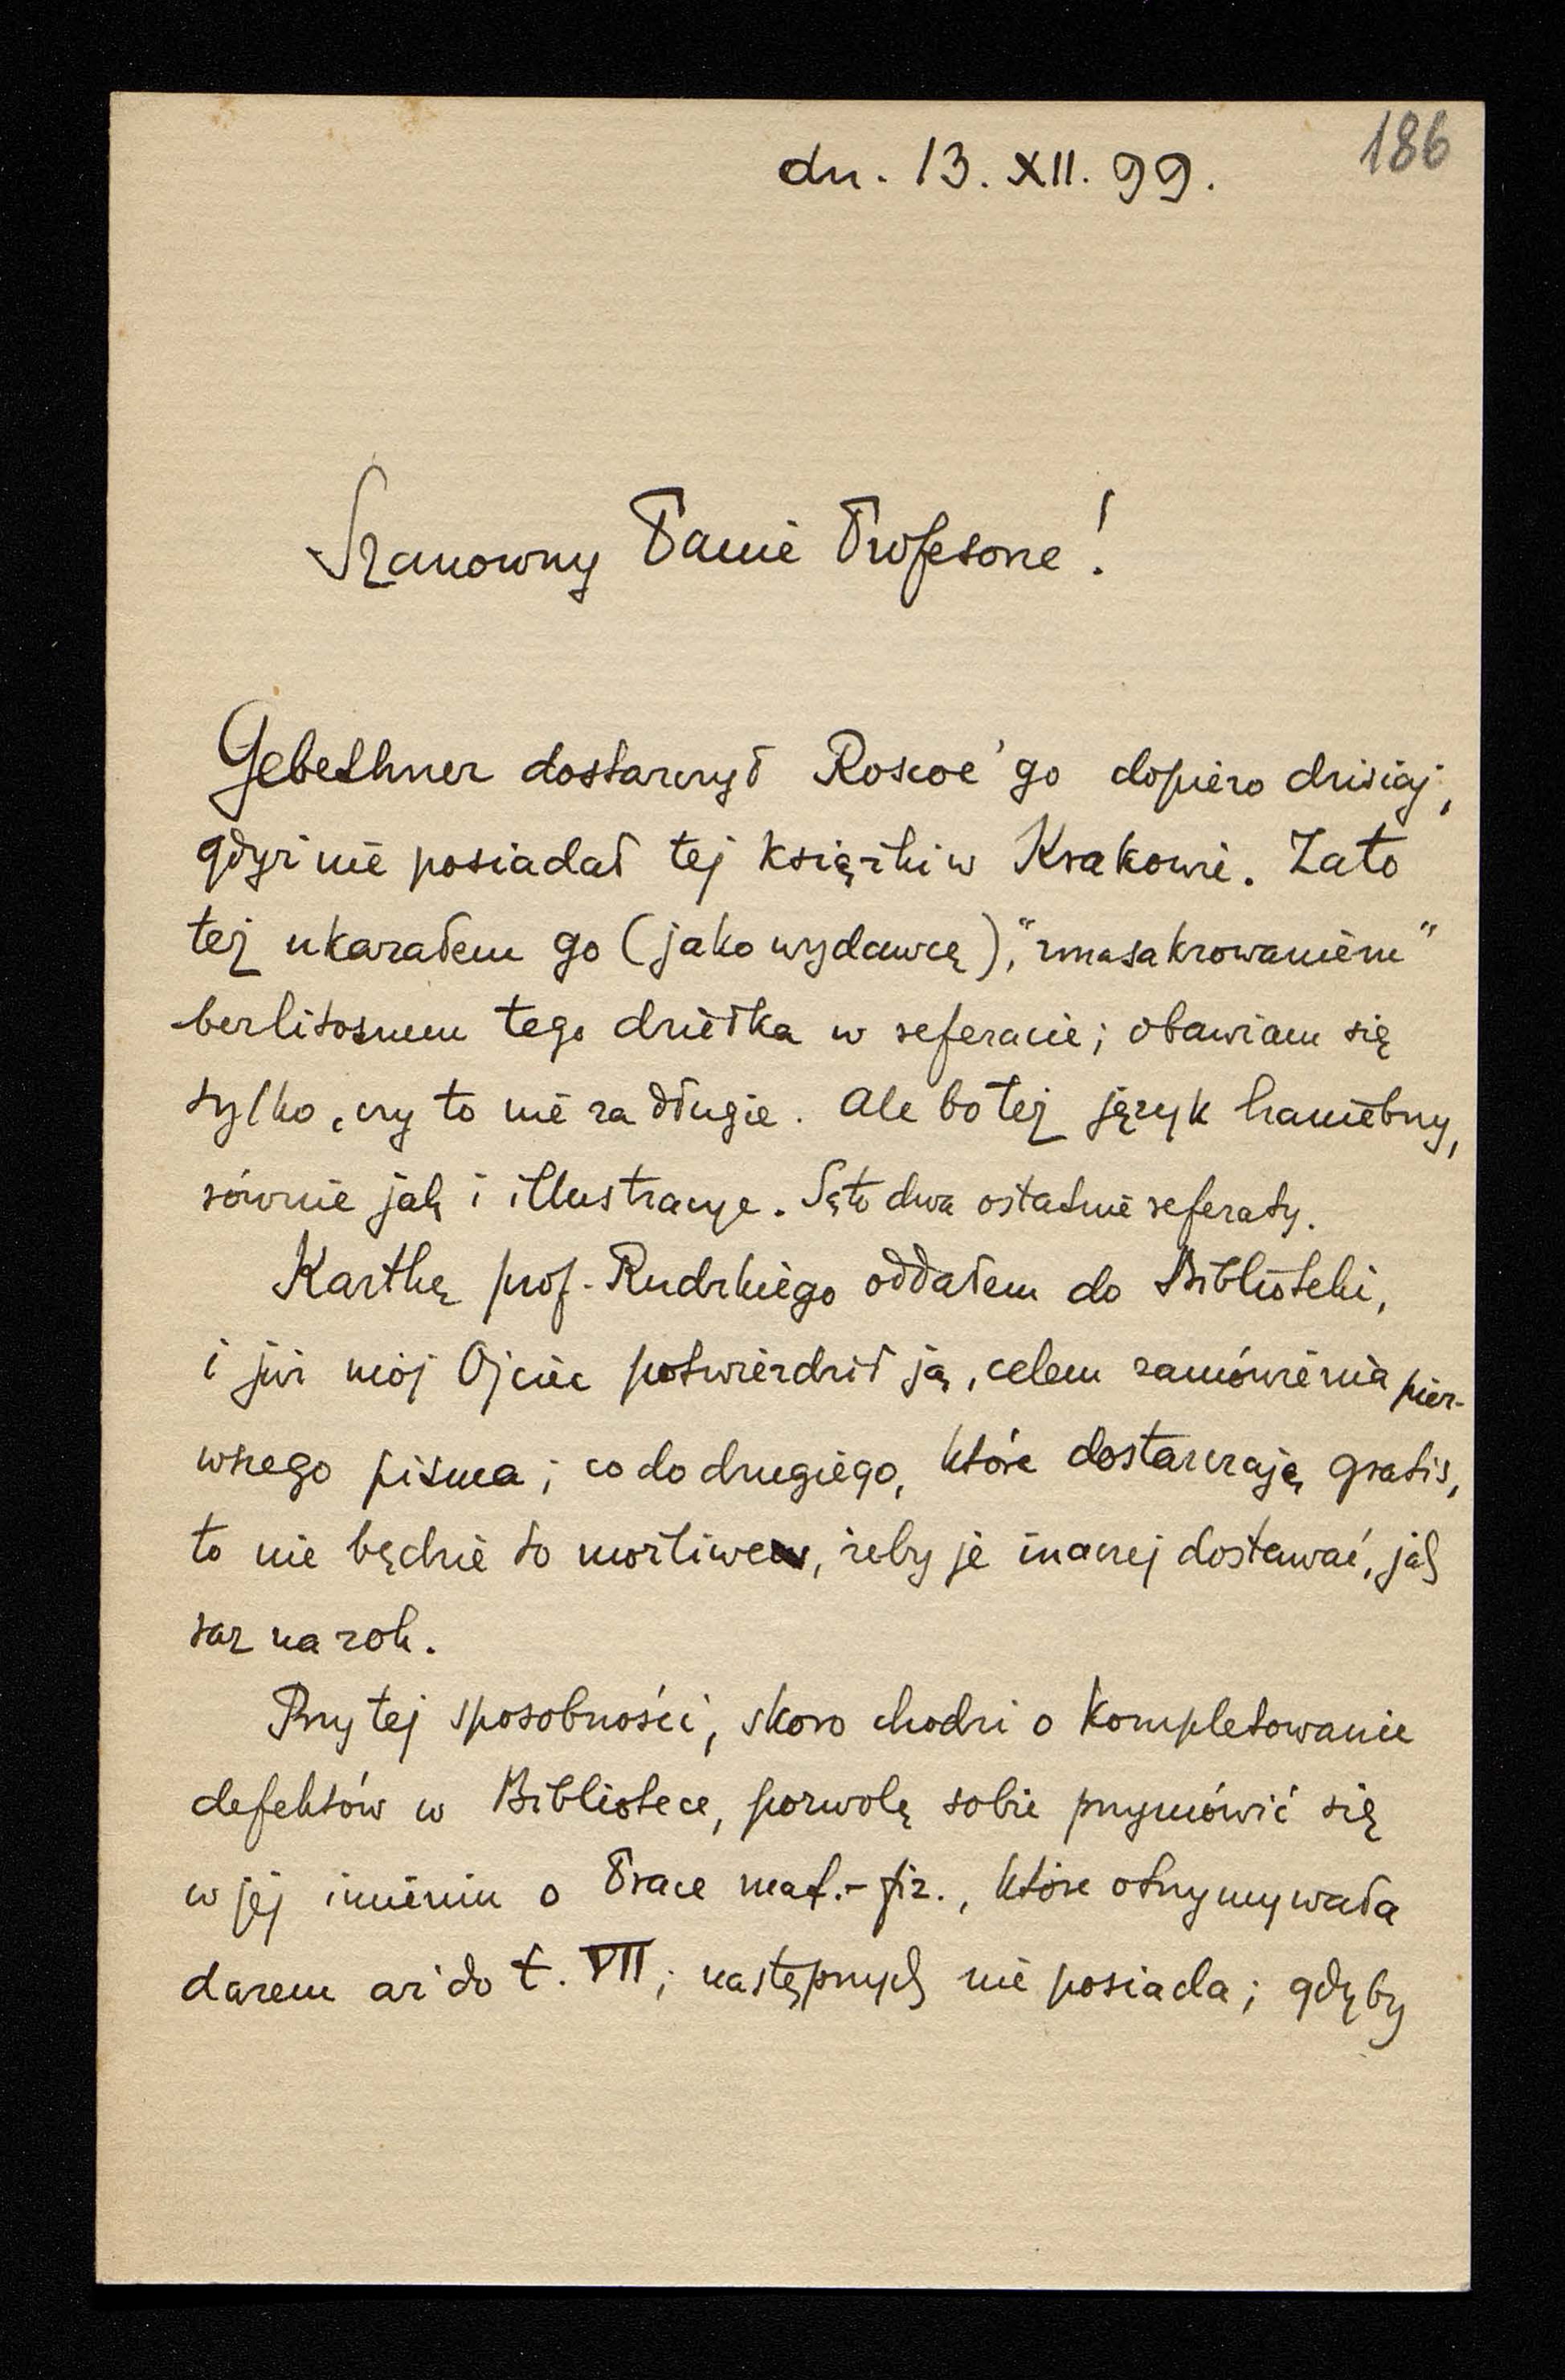 186
dn. 13. XII. 99.
Szanowny Panie Profesorze!
Gebethner dostarczył Roscoe'go dopiero dzisiaj,
gdyż nie posiadał tej książki w Krakowie. Zato
też ukarałem go (jako wydawcę), "zmasakrowaniem"
bezlitosnem tego dziełka w referacie; obawiam się
tylko, czy to nie za długie. Ale bo też język haniebny,
równie jak i illustracye. Są to dwa ostatnie referaty.
Kartkę prof. Rudzkiego oddałem do Biblioteki,
i już mój Ojciec potwierdził ją, celem zamówienia pier-
wszego pisma; co do drugiego, które dostarczają gratis,
to nie będzie to możliwe, żeby je inaczej dostawać, jak
raz na rok.
Przy tej sposobności, skoro chodzi o kompletowanie
defektów w Bibliotece, pozwolę sobie przymówić się
w jej imieniu o Prace mat.-fiz., które otrzymywała
darem aż do t. VII; następnych nie posiada; gdyby